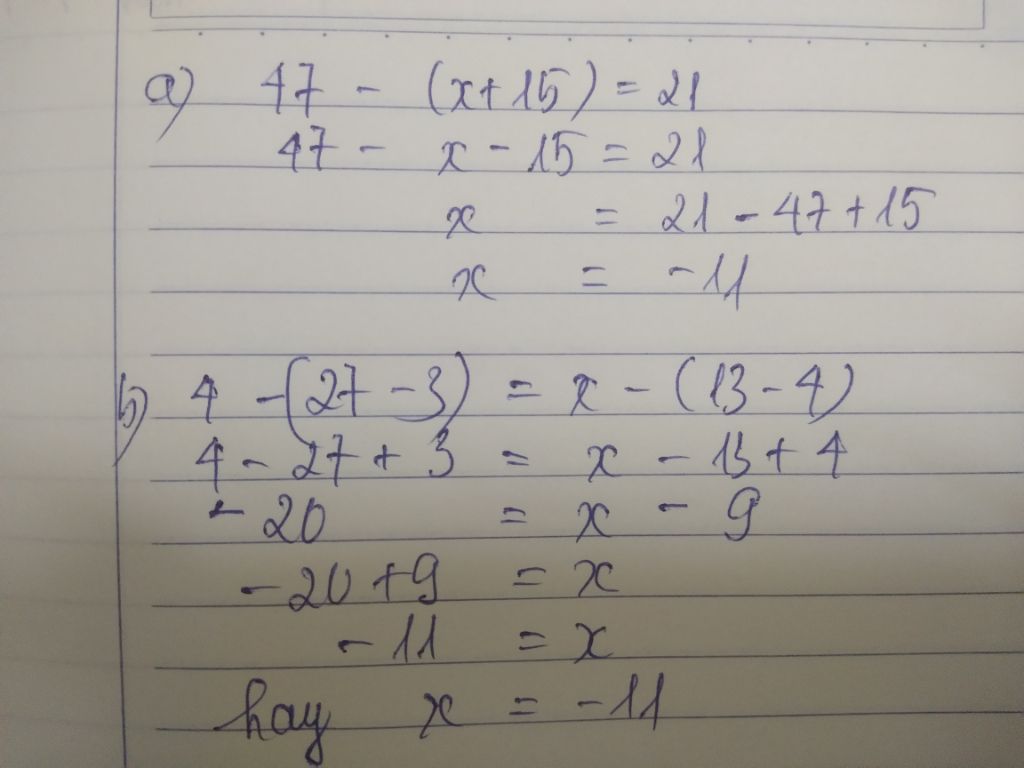 a) 47 - (x+15) = 21
47 - x - 15 = 21
x = 21 - 47 + 15
x = -11
b) 4 - (27 - 3) = x - (13 - 4)
4 - 27 + 3 = x - 13 + 4
- 20 = x - 9
- 20 + 9 = x
- 11 = x
hay x = -11